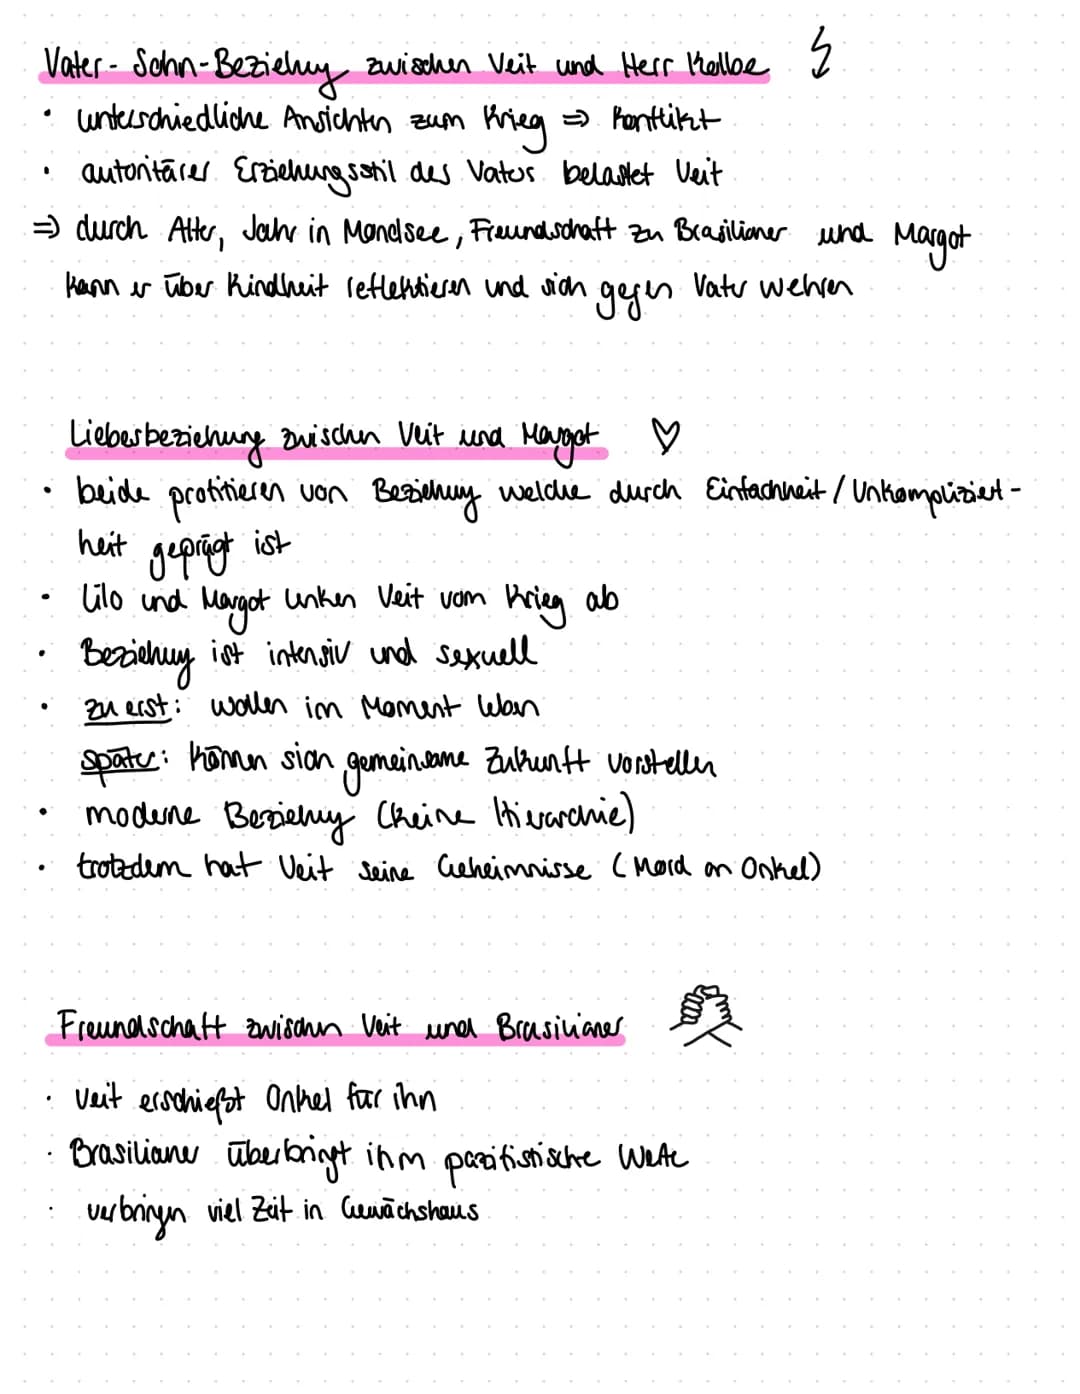 Vater-Sohn-Beziehung zwischen Veit und Herr Kolbe
• unterschiedliche Ansichten zum Krieg ⇒ Konflikt
• autoritärer Erziehungsstil des Vaters belastet Veit
⇒ durch Alter, Jahr in Mondsee, Freundschaft zu Brasilianer und Margot
kann er über Kindheit reflektieren und sich gegen Vater wehren
Liebesbeziehung zwischen Veit und Margot
• beide profitieren von Beziehung welche durch Einfachheit / Unkompliziert-
heit geprägt ist
• Lilo und Margot lenken Veit vom Krieg ab
• Beziehung ist intensiv und sexuell
• zu erst: wollen im Moment leben
später: können sich gemeinsame Zukunft vorstellen
• moderne Beziehung (keine Hierarchie)
• trotzdem hat Veit seine Geheimnisse (Mord an Onkel)
Freundschaft zwischen Veit und Brasilianer
• Veit erschießt Onkel für ihn
• Brasilianer überbringt ihm pazifistische Werte
• verbringen viel Zeit in Gewächshaus